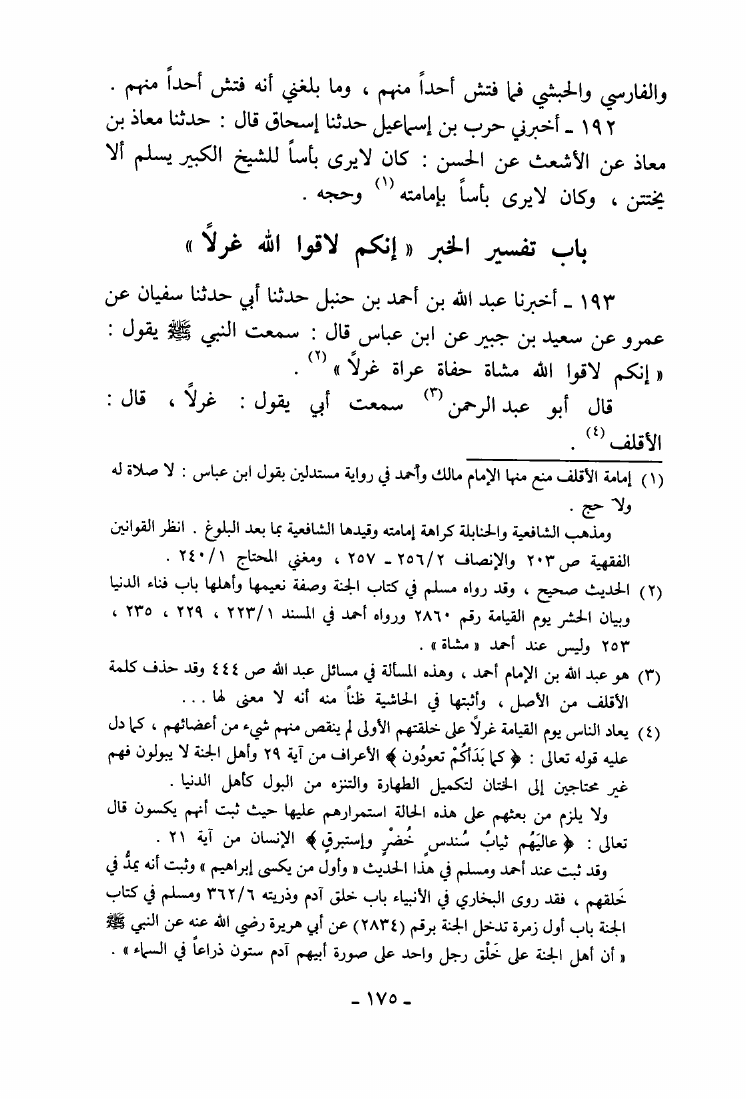 والفارسي والحبشي فما فتش أحداً منهم ، وما بلغني أنه فتش أحداً منهم .
١٩٢ ـ أخبرني حرب بن إسماعيل حدثنا إسحاق قال : حدثنا معاذ بن
معاذ عن الأشعث عن الحسن : كان لايرى بأساً للشيخ الكبير يسلم ألا
يختتن ، وكان لايرى بأساً بإمامته (١) وحجه .
باب تفسير الخبر « إنكم لاقوا الله غرلاً »
١٩٣ ـ أخبرنا عبد الله بن أحمد بن حنبل حدثنا أبي حدثنا سفيان عن
عمرو عن سعيد بن جبير عن ابن عباس قال : سمعت النبي ﷺ يقول :
« إنكم لاقوا الله مشاة حفاة عراة غرلاً » (٢) .
قال أبو عبد الرحمن (٣) سمعت أبي يقول : غرلاً ، قال :
الأقلف (٤) .
(١) إمامة الأقلف منع منها الإمام مالك وأحمد في رواية مستدلين بقول ابن عباس : لا صلاة له
ولا حج .
ومذهب الشافعية والحنابلة كراهة إمامته وقيدها الشافعية بما بعد البلوغ . انظر القوانين
الفقهية ص ٢٠٣ والإنصاف ٢٥٦/٢ ـ ٢٥٧ ، ومغني المحتاج ٢٤٠/١ .
(٢) الحديث صحيح ، وقد رواه مسلم في كتاب الجنة وصفة نعيمها وأهلها باب فناء الدنيا
وبيان الحشر يوم القيامة رقم ٢٨٦٠ ورواه أحمد في المسند ٢٢٣/١ ، ٢٢٩ ، ٢٣٥ ،
٢٥٣ وليس عند أحمد « مشاة » .
(٣) هو عبد الله بن الإمام أحمد ، وهذه المسألة في مسائل عبد الله ص ٤٤٤ وقد حذف كلمة
الأقلف من الأصل ، وأثبتها في الحاشية ظناً منه أنه لا معنى لها ...
(٤) يعاد الناس يوم القيامة غرلاً على خلقتهم الأولى لم ينقص منهم شيء من أعضائهم ، كما دل
عليه قوله تعالى : ﴿ كما بَدَأكُمْ تعودُون ﴾ الأعراف من آية ٢٩ وأهل الجنة لا يبولون فهم
غير محتاجين إلى الختان لتكميل الطهارة والتنزه من البول كأهل الدنيا .
ولا يلزم من بعثهم على هذه الحالة استمرارهم عليها حيث ثبت أنهم يكسون قال
تعالى : ﴿ عاليَهُم ثيابُ سُندسٍ خُضْرٍ وإستبرقٍ ﴾ الإنسان من آية ٢١ .
وقد ثبت عند أحمد ومسلم في هذا الحديث « وأول من يكسى إبراهيم » وثبت أنه يمدُّ في
خَلقهم ، فقد روى البخاري في الأنبياء باب خلق آدم وذريته ٣٦٢/٦ ومسلم في كتاب
الجنة باب أول زمرة تدخل الجنة برقم (٢٨٣٤) عن أبي هريرة رضي الله عنه عن النبي ﷺ
« أن أهل الجنة على خَلْق رجل واحد على صورة أبيهم آدم ستون ذراعاً في السماء » .
ـ ١٧٥ ـ